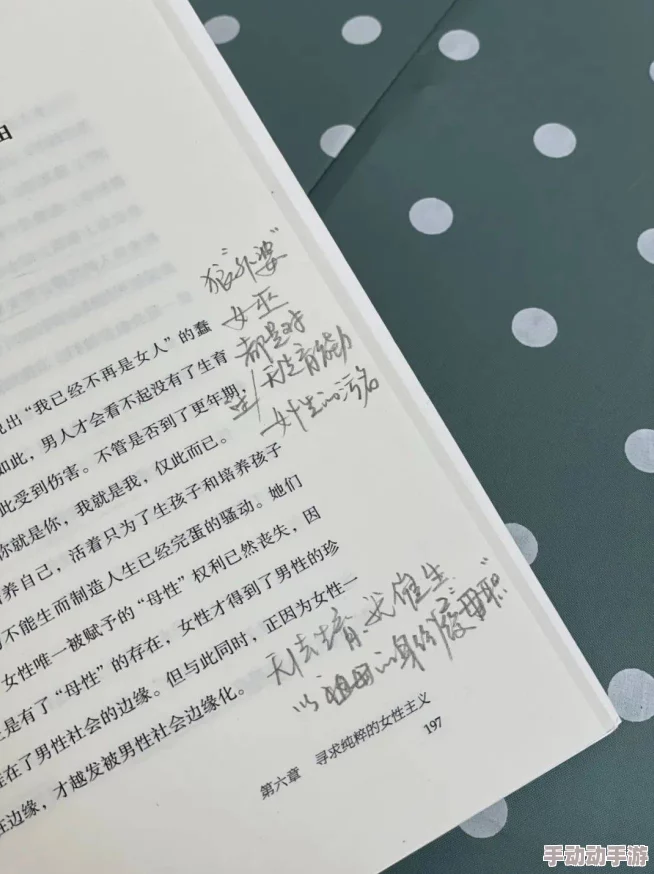 由
"狼外婆"
女巫
都是对
无生育能力
女性的污名
说出“我已经不再是女人”的蠢
如此，男人才会看不起没有了生育
此受到伤害。不管是否到了更年期，
你就是你，我就是我，仅此而已。
养自己，活着只为了生孩子和培养孩子
为不能生而制造人生已经完蛋的骚动。她们
女性唯一被赋予的“母性”权利已然丧失，因
是有了“母性”的存在，女性才得到了男性的珍
在了男性社会的边缘。但与此同时，正因为女性一
在边缘，才越发被男性社会边缘化。
无法生育
催生
"以祖母的身份
母职"
第六章 寻求纯粹的女性主义
197
手动动手游